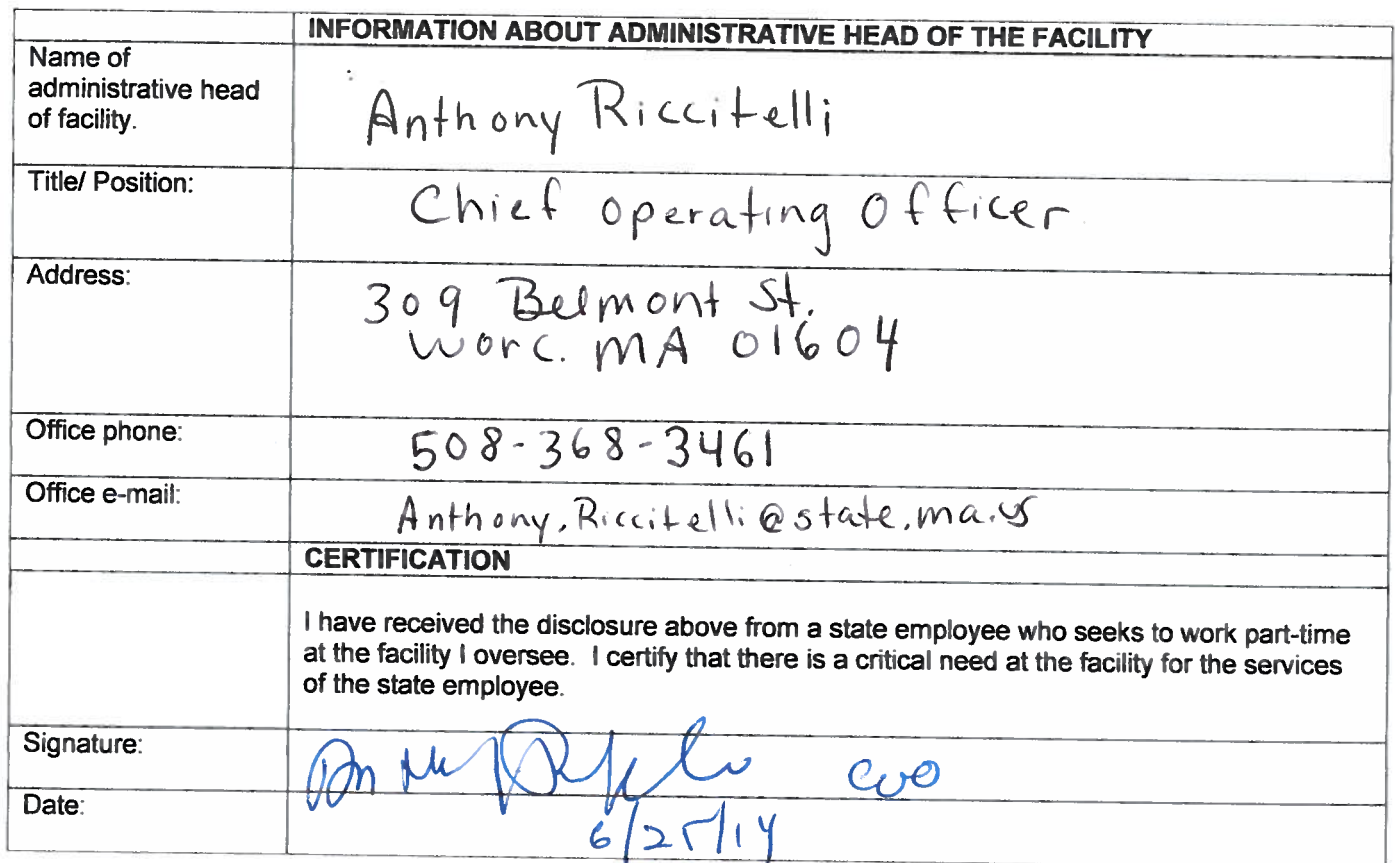 INFORMATION ABOUT ADMINISTRATIVE HEAD OF THE FACILITY
Name of
administrative head
of facility.
Anthony Riccitelli
Title/ Position:
Chief operating Officer
Address:
309 Belmont St.
Worc. MA 01604
Office phone:
508-368-3461
Office e-mail:
Anthony.Riccitelli@state.ma.us
CERTIFICATION
I have received the disclosure above from a state employee who seeks to work part-time
at the facility I oversee. I certify that there is a critical need at the facility for the services
of the state employee.
Signature:
COO
Date:
6/25/14